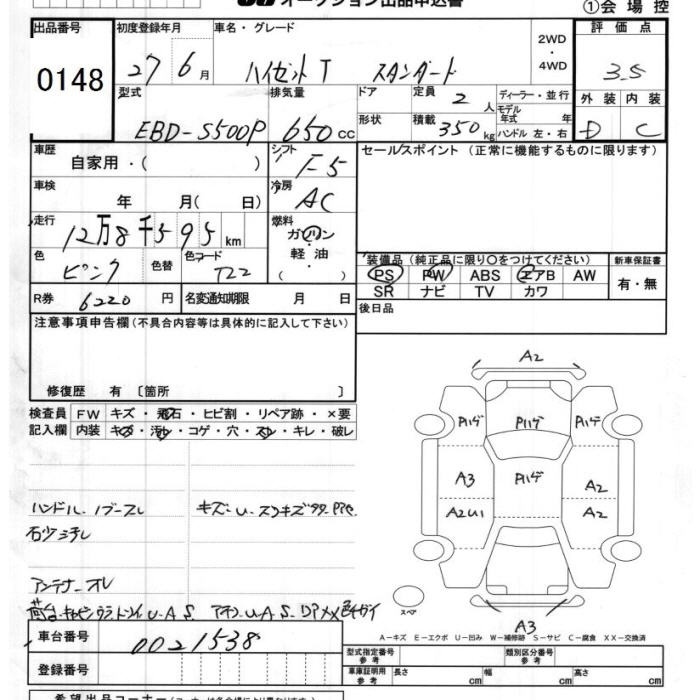 オークション出品申込書
①会場控
出品番号 初度登録年月 車名・グレード 2WD・4WD 評価点
0148 27 6月 ハイゼットT スタンダード 3.5
型式 排気量 ドア 定員 2人 ディーラー・並行 外装 内装
EBD-S500P 650cc 形状 積載 350kg モデル年式 年 ハンドル 左・右 D C
車歴 自家用・( ) シフト F5 セールスポイント (正常に機能するものに限ります)
車検 年 月( 日) 冷房 AC
走行 12万8千595km 燃料 ガソリン・軽油・( )
色 ピンク 色替 色コード T22 装備品(純正品に限り○をつけてください) 新車保証書
PS PW ABS エアB AW 有・無
SR ナビ TV カワ
R券 6220円 名変通知期限 月 日 後日品
注意事項申告欄(不具合内容等は具体的に記入して下さい)
修復歴 有 〔箇所 〕
検査員記入欄 FW キズ・飛石・ヒビ割・リペア跡・×要
内装 キズ・汚れ・コゲ・穴・スレ・キレ・破レ
A2
Pハゲ Pハゲ Pハゲ
A3 Pハゲ A2
A2U1 A2
ハンドル・ノブースレ キズ・U・スリキズ
アンテナーオレ
スペア
A3
A－キズ E－エクボ U－凹み W－補修跡 S－サビ C－腐食 XX－交換済
車台番号 0021538
登録番号
型式指定番号 参考 類別区分番号 参考
車庫証明用 参考 長さ cm 幅 cm 高さ cm
希望出品コーナー